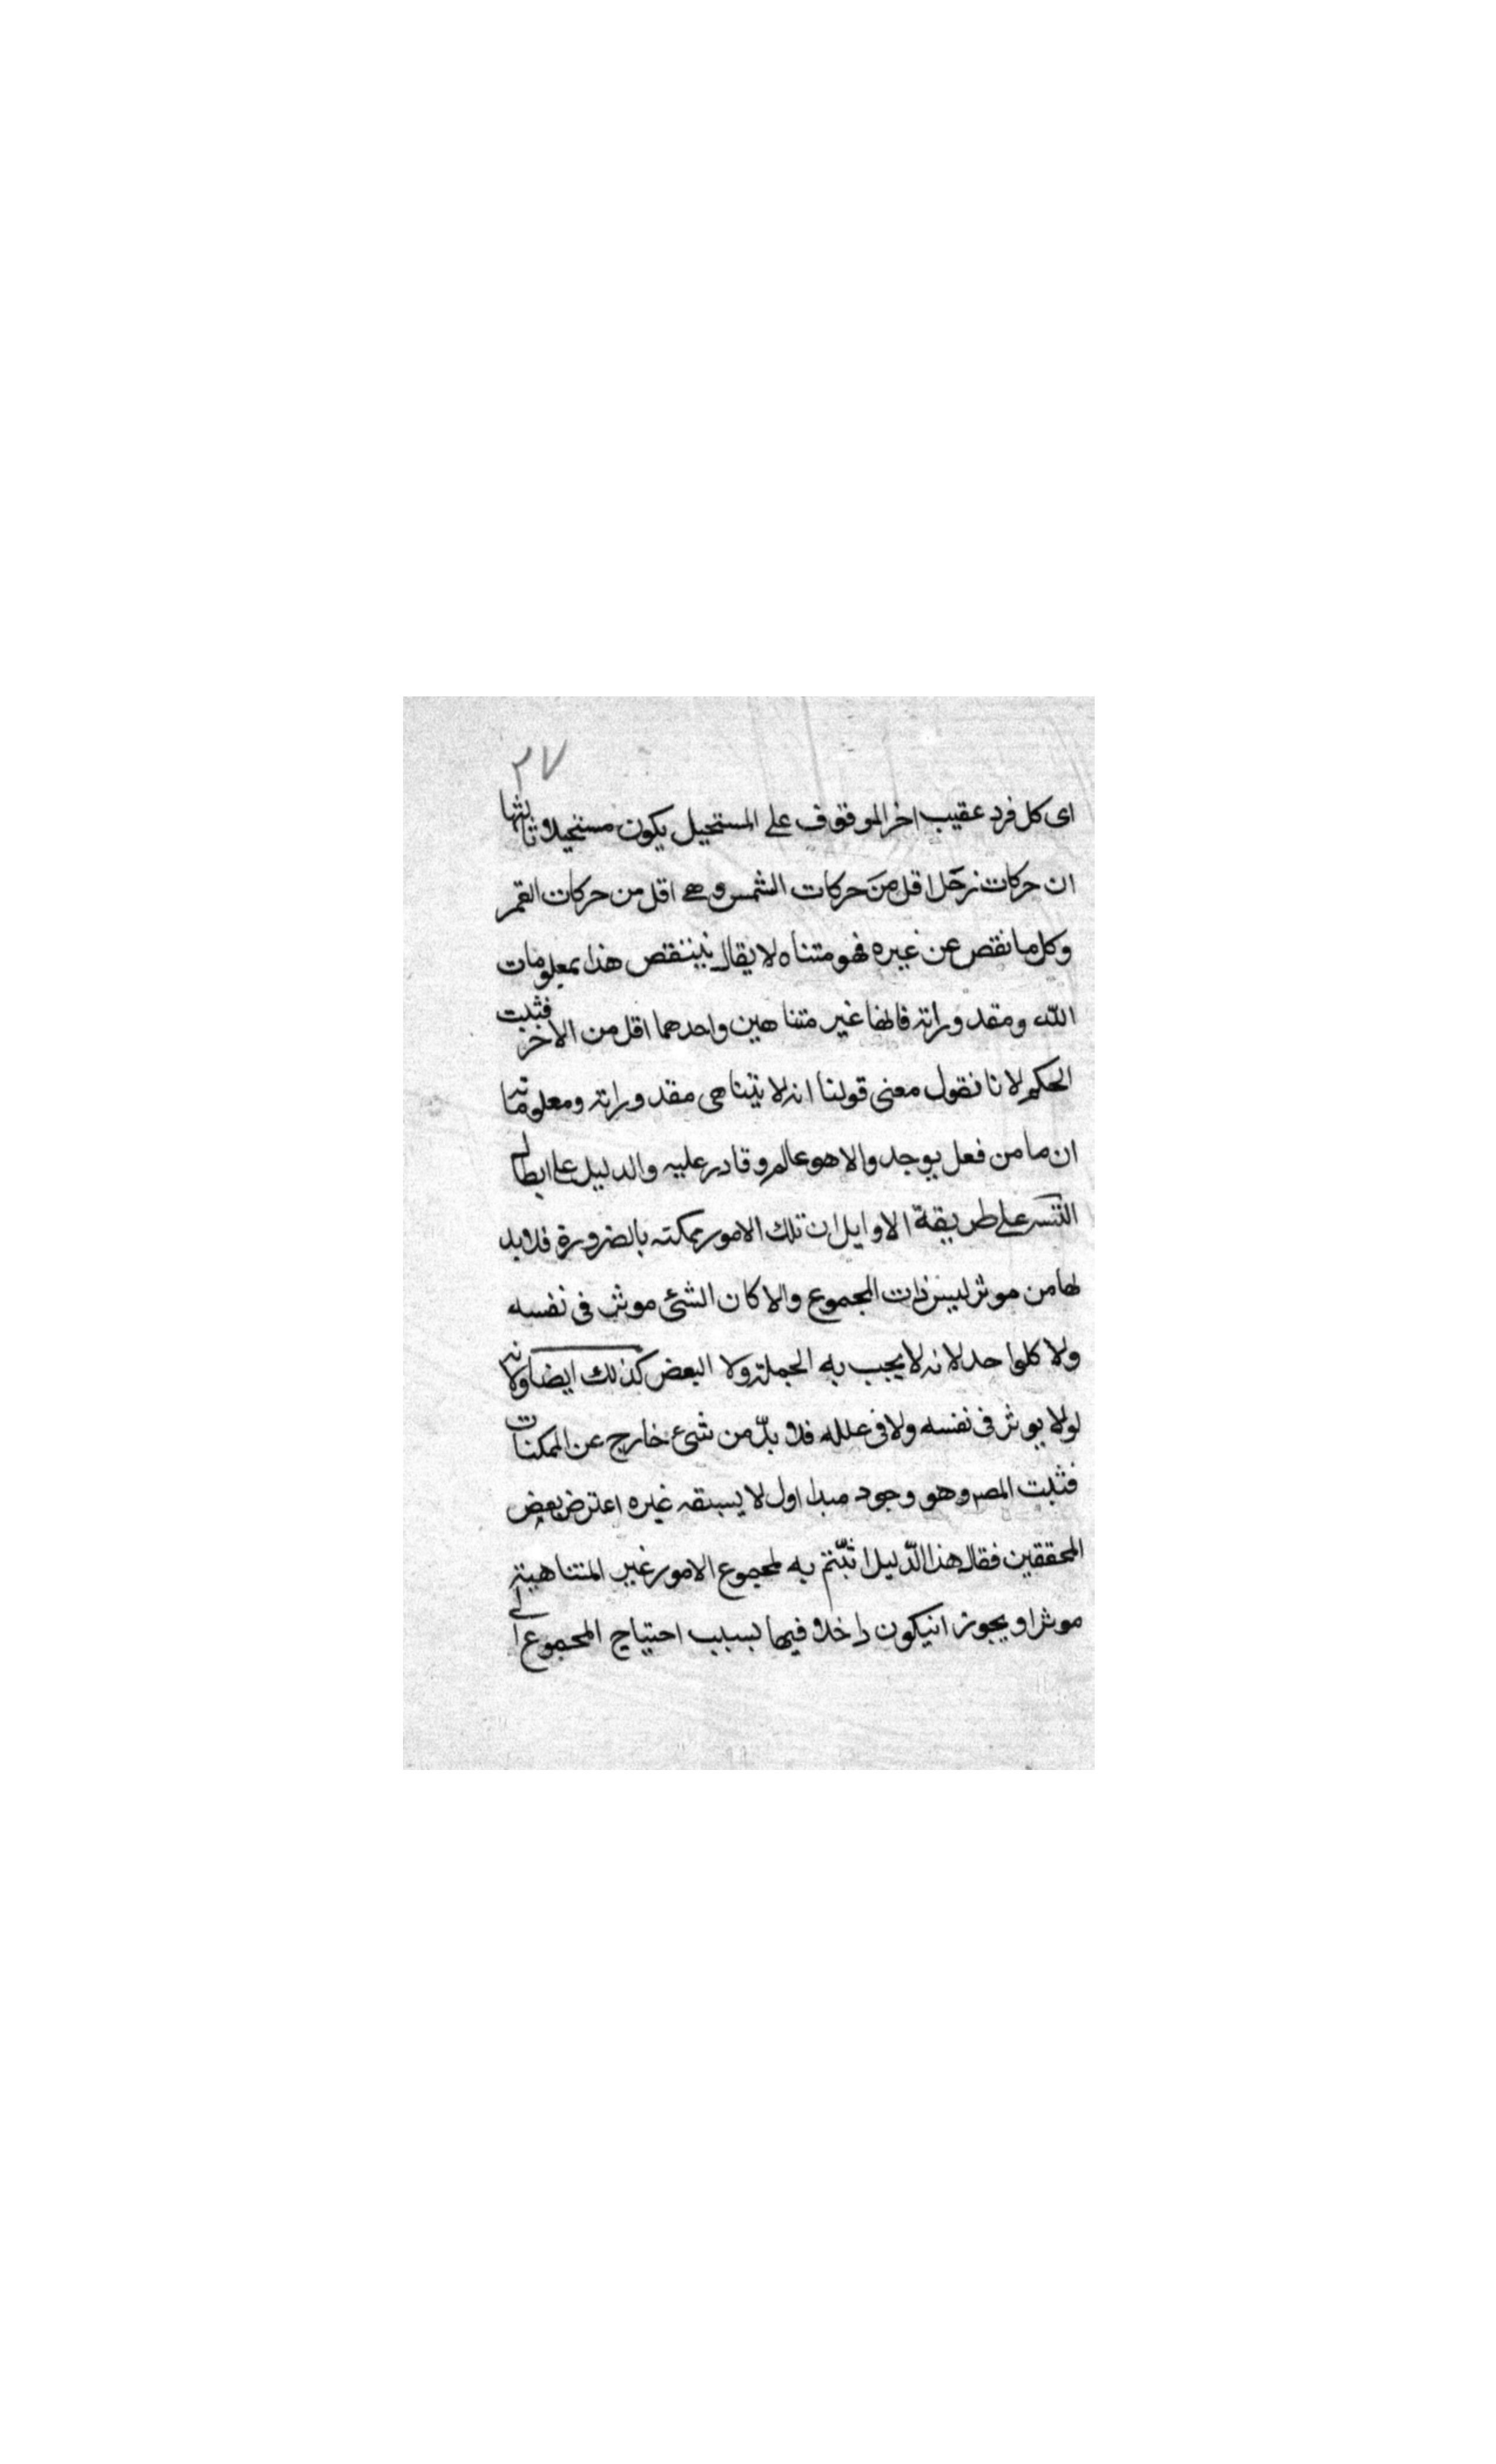 ٢٧
اى كل فرد عقيب اخر الموقوف على المستحيل يكون مستحيلا وثالثها
ان حركات زحل اقل من حركات الشمس وهى اقل من حركات القمر
وكل ما نقص عن غيره فهو متناه لا يقال ينتقص هذا بمعلومات
الله ومقدوراته فانها غير متناهين واحدهما اقل من الاخر فثبت
الحكم لانا نقول معنى قولنا انه لا يتناهى مقدوراته ومعلوماته
ان ما من فعل يوجد والا هو عالم وقادر عليه والدليل على ابطال
التسـ على طريقة الاوايل ان تلك الامور ممكنة بالضرورة فلا بد
لها من موثر ليس ذات المجموع والا كان الشئ موثر فى نفسه
ولا كلواحد لانه لا يجب به الجملة ولا البعض كذلك ايضا ولانه
لولا يوثر فى نفسه ولا فى علله فلا بدّ من شئ خارج عن الممكنات
فثبت المصـ وهو وجود مبدا اول لا يسبقه غيره اعترض بعض
المحققين فقال هذا الدّليل اثبّتم به لمجموع الامور غير المتناهية
موثرا ويجوز انيكون داخلا فيها بسبب احتياج المجموع الى